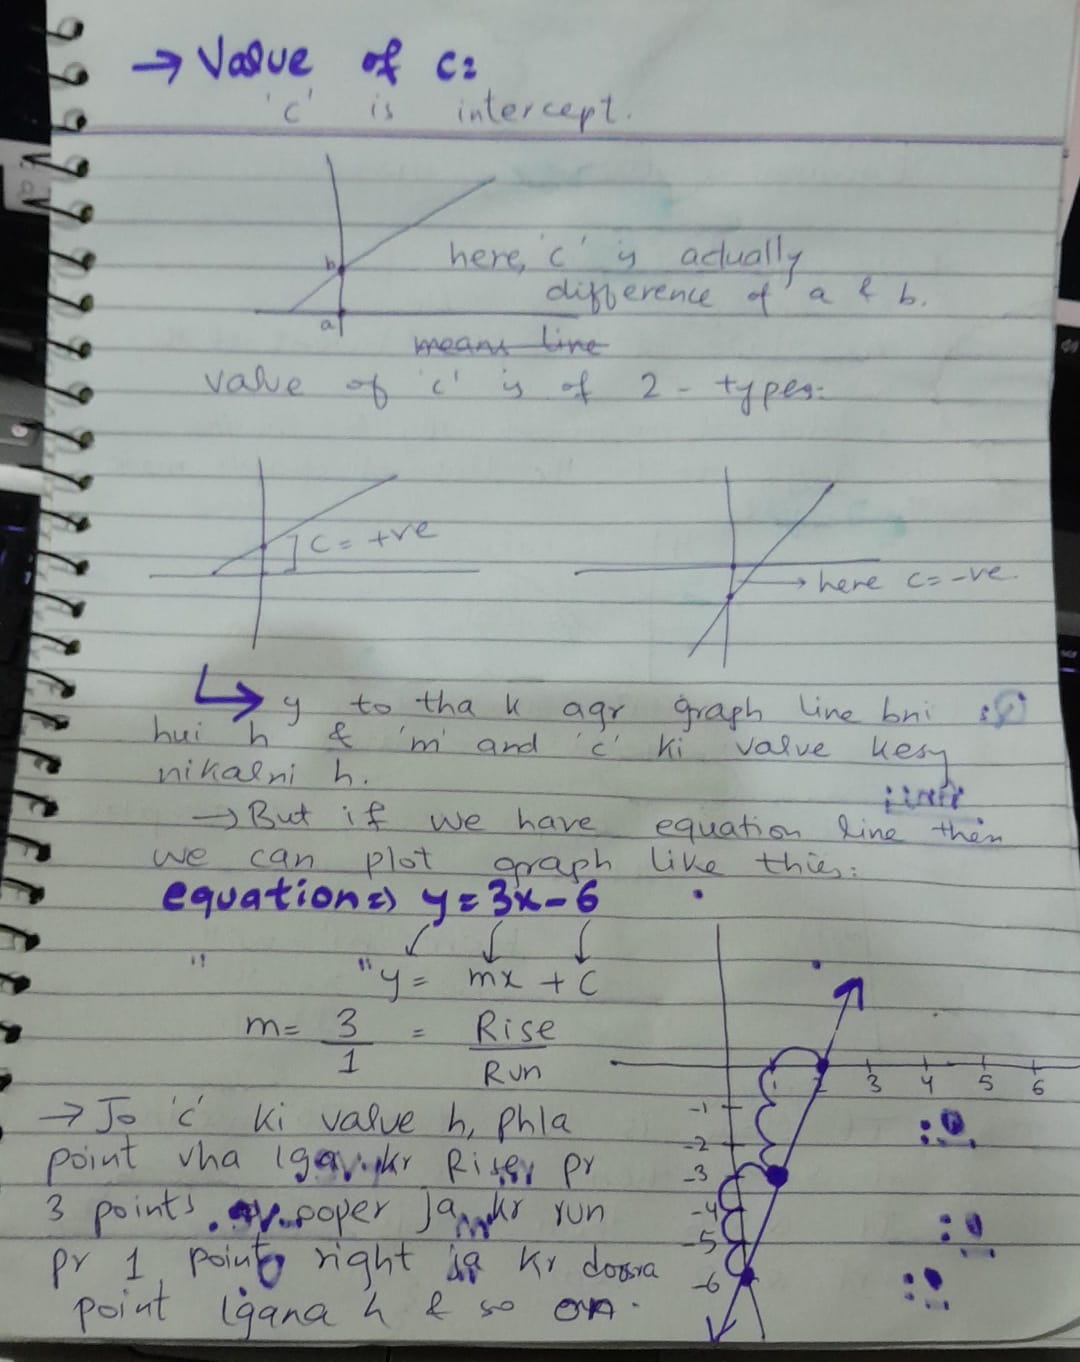 → Value of c:
'c' is intercept.
b
here, 'c' is actually
difference of a & b.
a
means line
value of 'c' is of 2 - types:
C = +ve
here c = -ve
↳ y to tha k agr graph line bni
hui h & 'm' and 'c' ki value kesy
nikalni h.
→ But if we have equation line then
we can plot graph like this:
equation => y = 3x - 6
"y = mx + C
m = 3/1 = Rise/Run
2 3 4 5 6
-1
-2
-3
-4
-5
-6
→ Jo 'c' ki value h, phla
point vha lga kr Rise pr
3 points oper ja kr run
pr 1 point right ja kr dosra
point lgana h & so on.